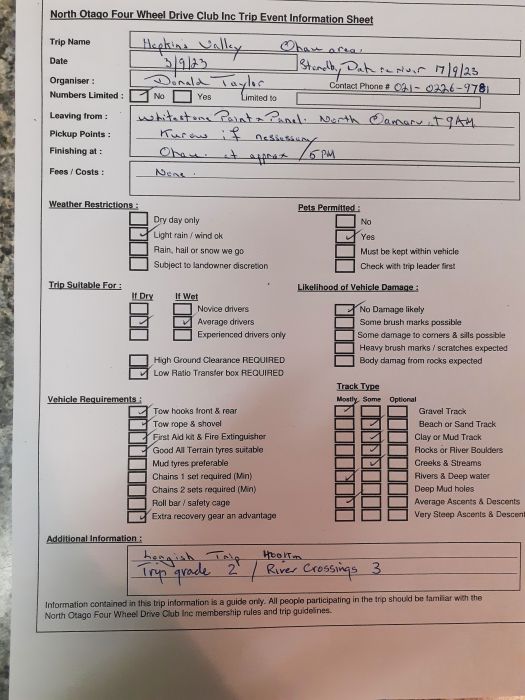 North Otago Four Wheel Drive Club Inc Trip Event Information Sheet
Trip Name Hopkins Valley Ohau area.
Date 3/9/23 Standby Date 17/9/23
Organiser : Donald Taylor Contact Phone # 021- 0226-9781
Numbers Limited : No Yes Limited to
Leaving from : Whitestone Paint & Panel. North Oamaru. 9AM
Pickup Points : Kurow if
Finishing at : Ohau. at approx 5PM
Fees / Costs : None.
Weather Restrictions :
Dry day only
Light rain / wind ok
Rain, hail or snow we go
Subject to landowner discretion
Pets Permitted :
No
Yes
Must be kept within vehicle
Check with trip leader first
Trip Suitable For :
If Dry If Wet
Novice drivers
Average drivers
Experienced drivers only
High Ground Clearance REQUIRED
Low Ratio Transfer box REQUIRED
Likelihood of Vehicle Damage :
No Damage likely
Some brush marks possible
Some damage to corners & sills possible
Heavy brush marks / scratches expected
Body damag from rocks expected
Vehicle Requirements :
Tow hooks front & rear
Tow rope & shovel
First Aid kit & Fire Extinguisher
Good All Terrain tyres suitable
Mud tyres preferable
Chains 1 set required (Min)
Chains 2 sets required (Min)
Roll bar / safety cage
Extra recovery gear an advantage
Track Type
Mostly Some Optional
Gravel Track
Beach or Sand Track
Clay or Mud Track
Rocks or River Boulders
Creeks & Streams
Rivers & Deep water
Deep Mud holes
Average Ascents & Descents
Very Steep Ascents & Descent
Additional Information :
Longish Trip
Trip grade 2 / River Crossings 3
Information contained in this trip information is a guide only. All people participating in the trip should be familiar with the
North Otago Four Wheel Drive Club Inc membership rules and trip guidelines.